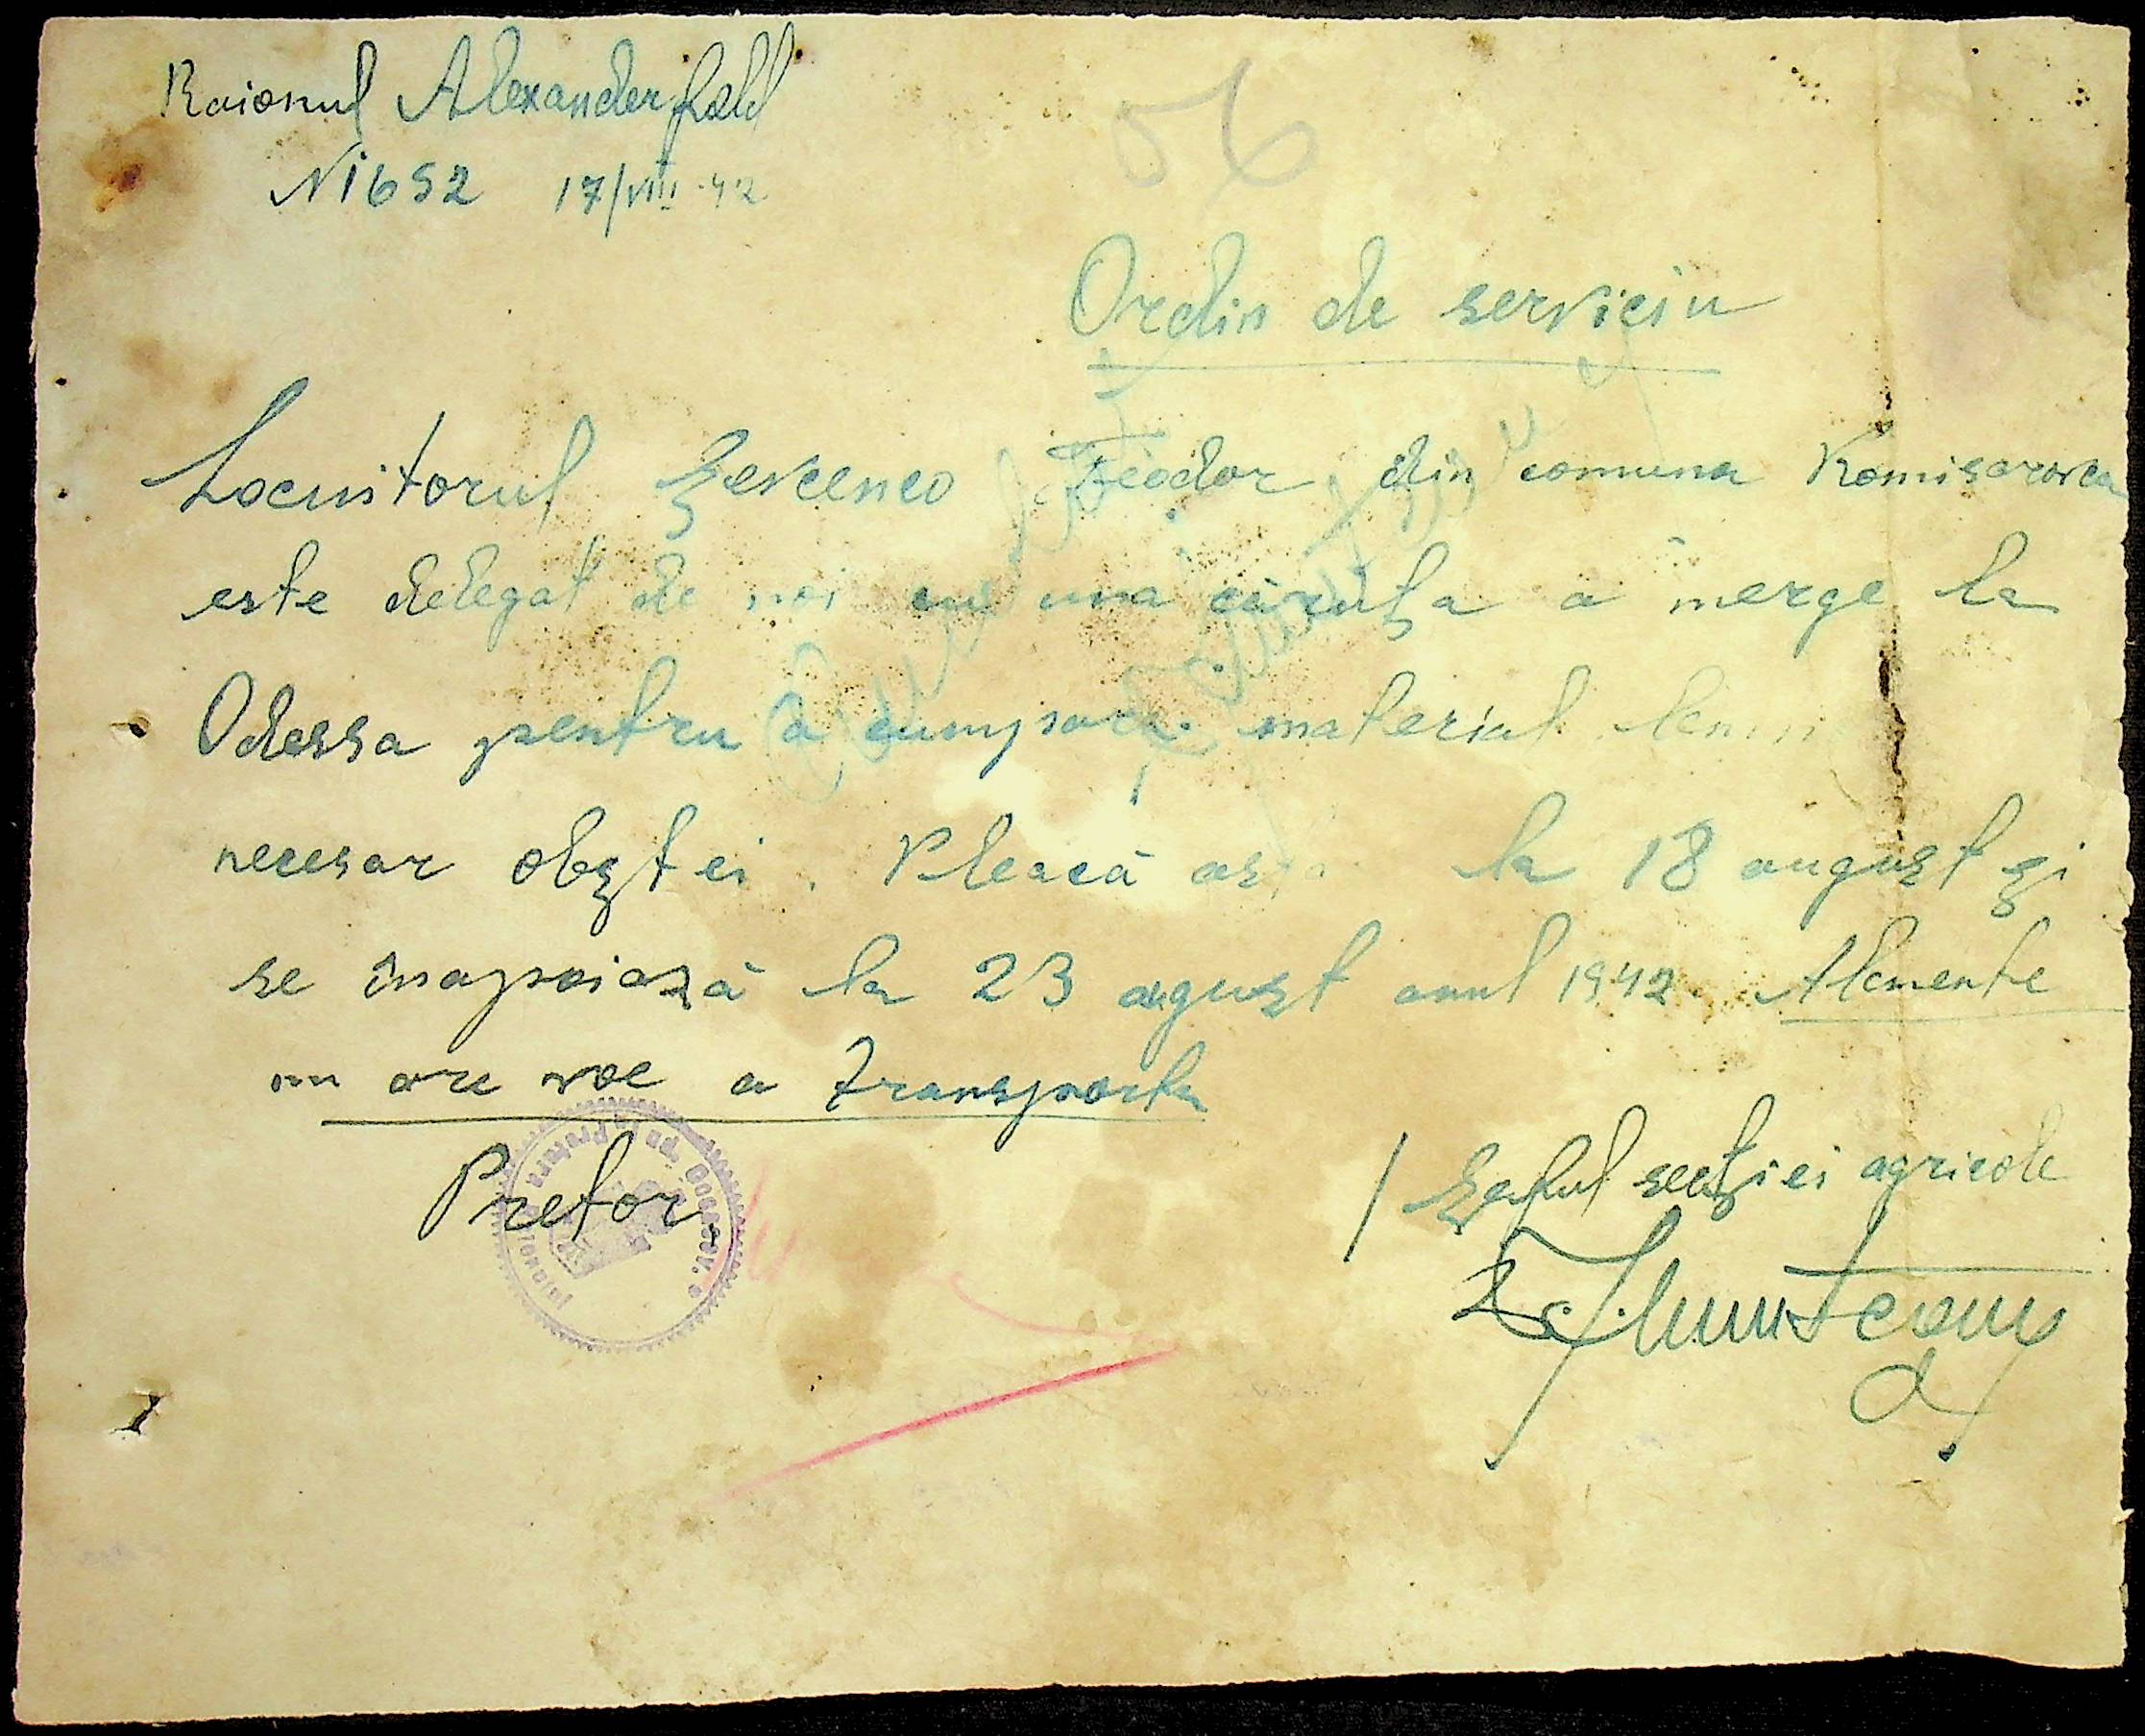 Raionul Alexanderfeld
N 1652 17/VIII-42
56
Ordin de serviciu
Locuitorul Șevcenco Feodor din comuna Komisarovca
este delegat de noi cu una căruța a merge la
Odessa pentru a cumpara material lemn
necesar obștei. Pleacă la 18 auguşt și
se înapoiază la 23 auguşt anul 1942. Alemente
nu are voe a transporta
Pretor
/ Șeful secției agricole